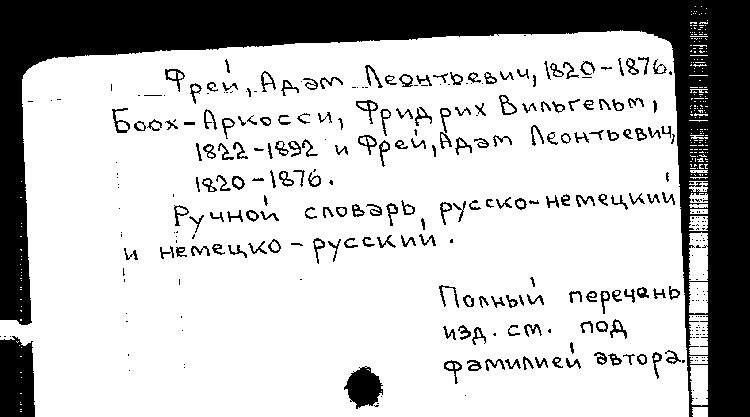 Фрей, Адам Леонтьевич, 1820-1876.
Боох-Аркосси, Фридрих Вильгельм,
1822-1892 и Фрей, Адам Леонтьевич,
1820-1876.
Ручной словарь, русско-немецкий
и немецко-русский.
Полный перечень
изд. см. под
фамилией автора.